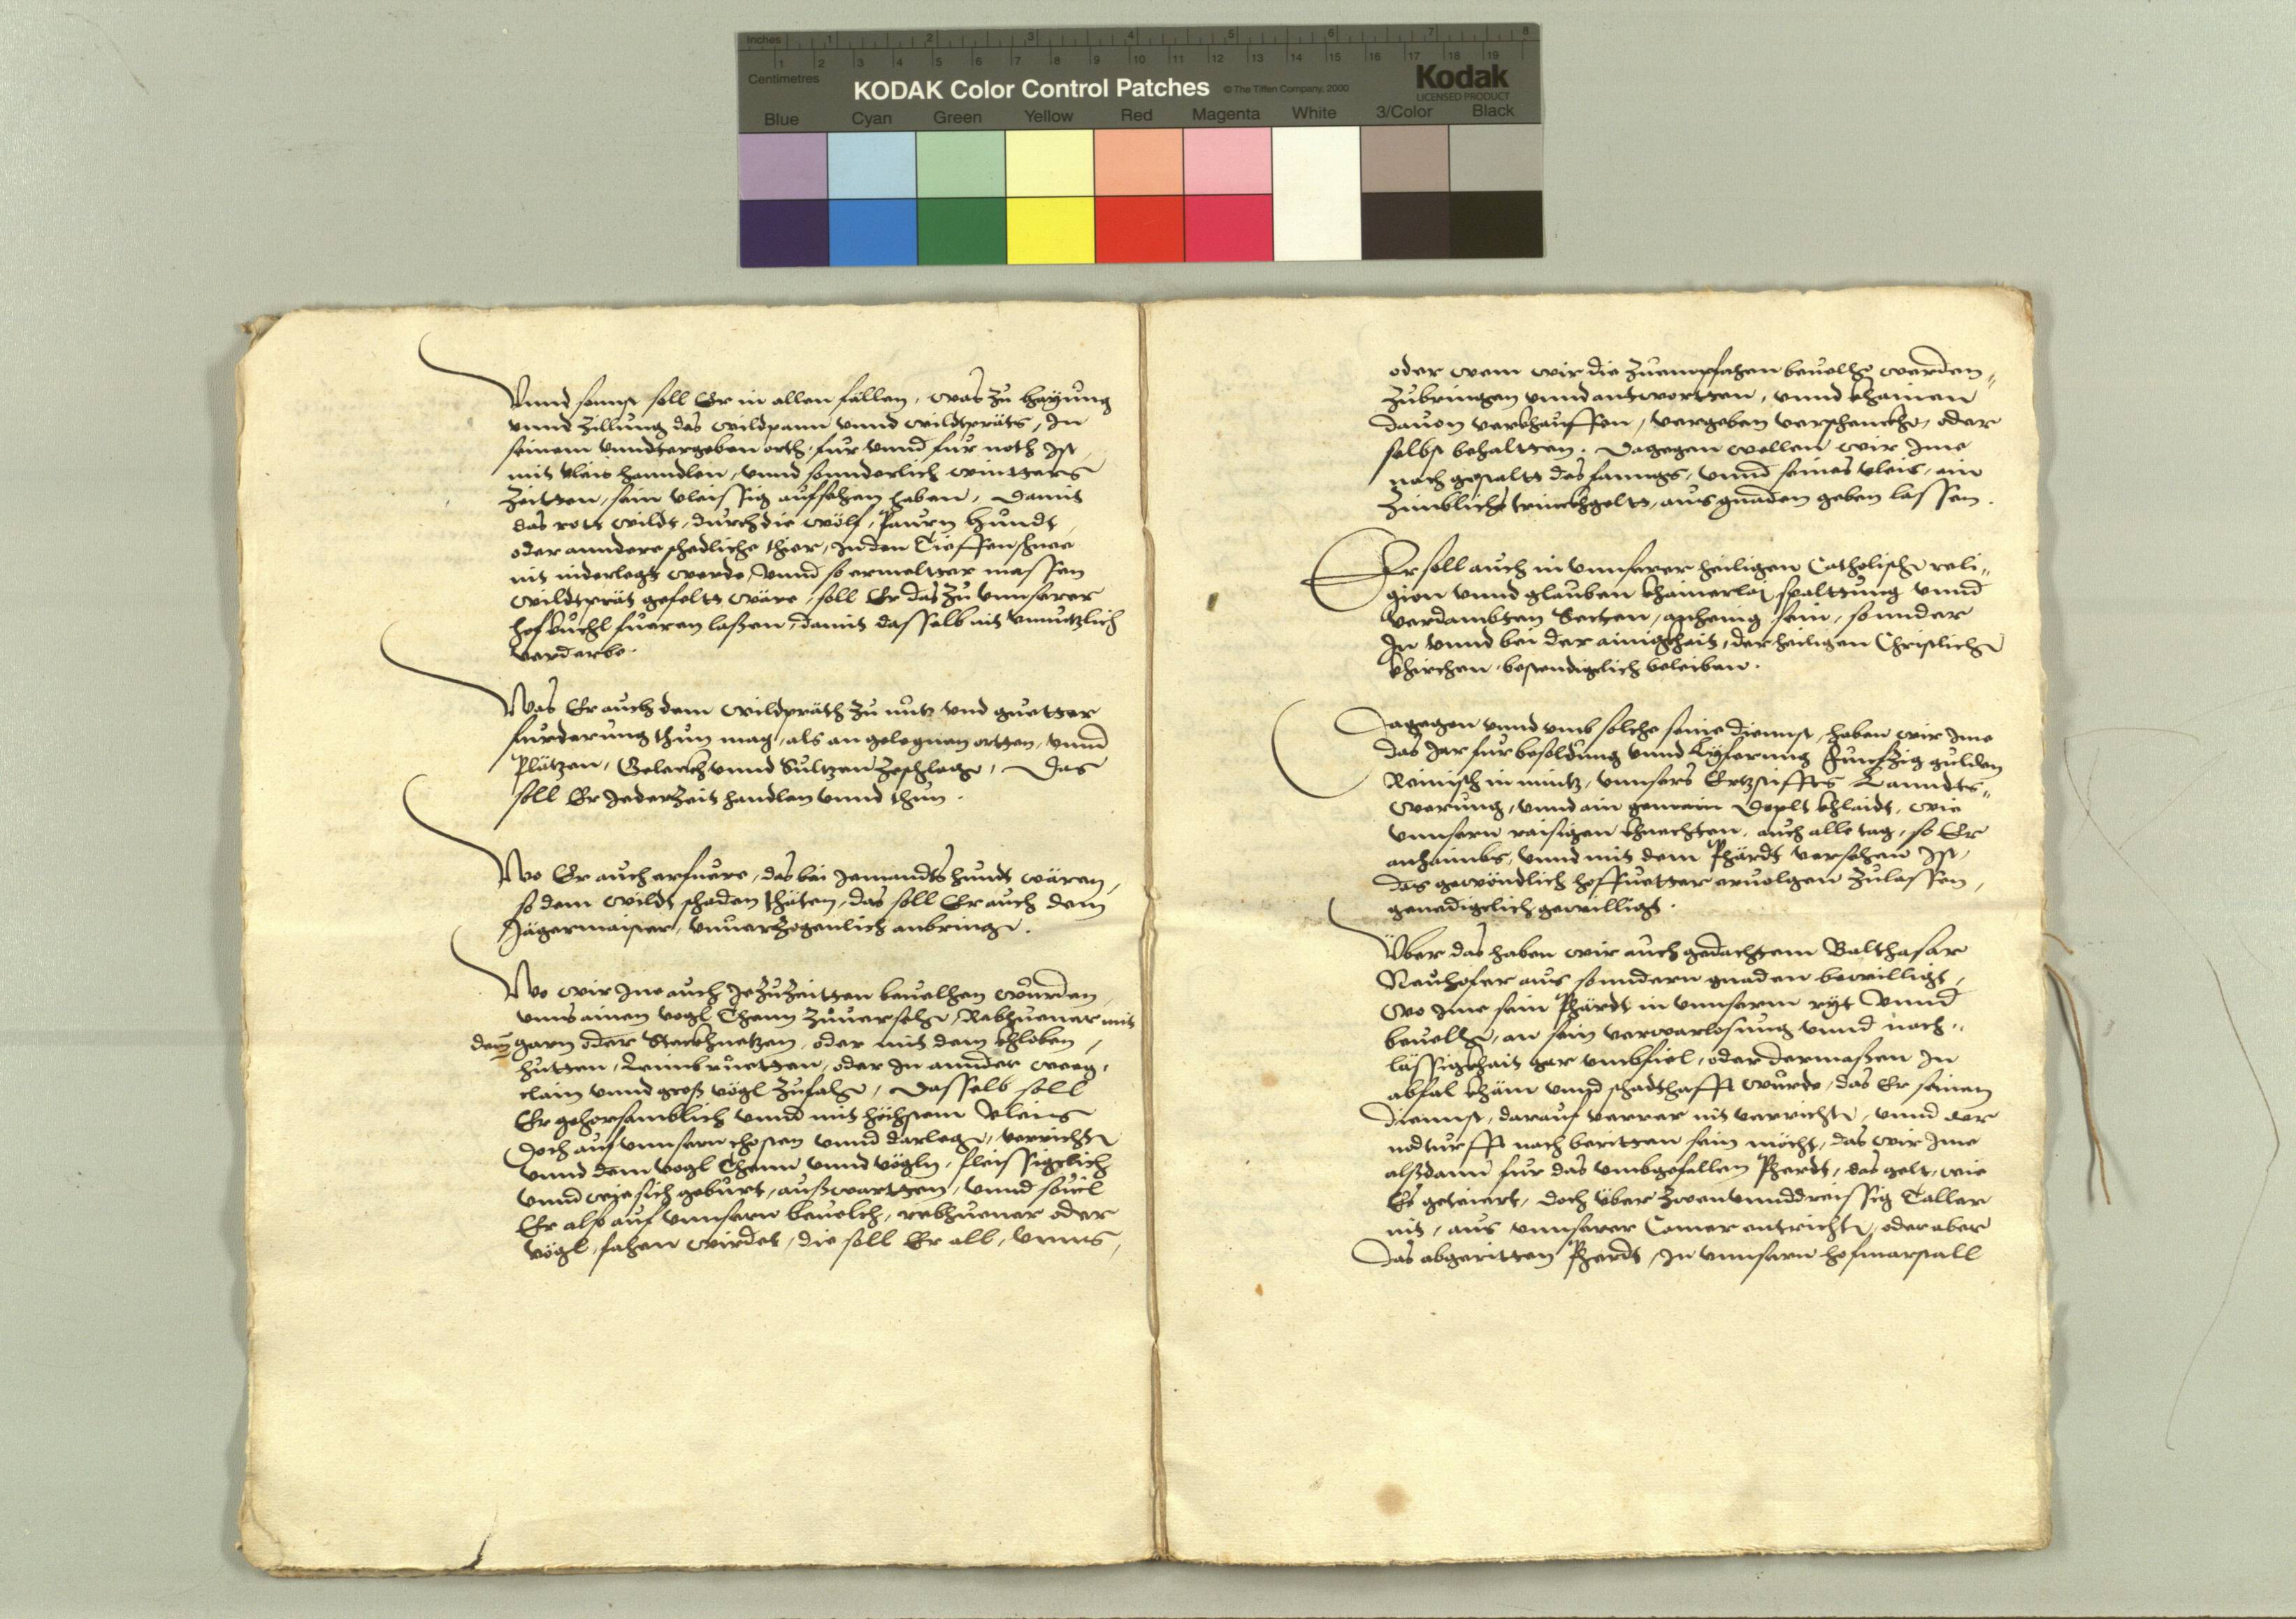 Inches 1 2 3 4 5 6 7 8
Centimetres 1 2 3 4 5 6 7 8 9 10 11 12 13 14 15 16 17 18 19
KODAK Color Control Patches © The Tiffen Company, 2000 Kodak
LICENSED PRODUCT
Blue Cyan Green Yellow Red Magenta White 3/Color Black
Vnnd sonnst soll Er in allen fällen, was zu hayung
vnnd Zillung das wildpann vnnd wildtpräts, In
seinem vnndtergeben orth, fur vnnd fur noth Ist,
mit vleis hanndlen, vnnd sonnderlich wintters
Zeitten, sein vleissig aufsehen haben, Damit
das rott wildt, durch die wölf, Paurn hundt,
oder anndere schedliche thier, In den Tieffen schnee
nit niderlegt werde, Vnnd so ermelter massen
wildtprät gefelt wäre, soll Er das zu vnnserer
hof kuchl fueren laßen, damit dasselb nit vnnutzlich
verderbe.
Was Er auch dem wildpräth zu nutz vnd guetter
furderung thun mag, als an gelegnen ortten, vnnd
Plätzen, Gelerch vnnd Sultzen zeschlagen, Das
soll Er Jederzeit handlen vnnd thun.
Wo Er auch erfuere, das bei Jemandts hundt wären,
so dem wildt schaden thäten, das soll Er auch dem
Jägermaister, vnuerzogenlich anbringen.
Wo wir Ine auch Jezuzeitten beuelhen wurden,
vnns ainen vogl Thenn zuuersehen, Rebhuener mit
dem garn oder Steckhnetzen, oder mit dem khloben,
hutten, Leimbruetten, oder In annder weeg,
clain vnnd groß vögl zufahen, Dasselb soll
Er gehorsamblich vnnd mit höchstem vleiß
Doch auf vnnsern chosten vnnd darlegen, verrichten
vnnd dem vogl Thenn vnnd vögln, fleissigelich
vnnd wie sich geburt, außwartten, vnnd souil
Er also auf vnnsern beuelch, rebhuener oder
vögl, fahen wirdet, die soll Er all, vnns,
oder wem wir die zuempfahen beuelhen werden,
zubringen vnnd antwortten, vnnd khainen
dauon verkhauffen, vergeben verschenckhen, oder
selbst behaltten. Dagegen wellen wir Ime
nach gestaltt des fanngs, vnnd seines vleis, ain
Zimbliches trinckhgeltt, aus gnaden geben lassen.
Er soll auch in vnnserer heiligen Catholischen reli-
gion vnnd glauben khainerlai spalttung vnnd
verdambten Secten, anhenig sein, sonnder
In vnnd bei der ainigkhait, der heiligen Christlichen
khirchen, bestendigelich beleiben.
Dagegen vnnd vmb solche seine diennst, haben wir Ime
das Jar fur besoldung vnnd Lyferung Funfzig gulden
Reinisch in mintz, vnnsers Ertzstiffts Lanndts-
werung, vnnd ain gemein Doplt khlaidt, wie
vnnsern raisigen khnechten, auch alle tag, so Er
anhaimbs, vnnd mit dem Phärdt versehen Ist,
das gewöndlich hoffuetter eruolgen zulassen,
genedigelich gewilligt.
Über das haben wir auch gedachtem Balthasar
Neuhofer aus sonndern gnaden bewilligt,
wo Ime sein Phärdt in vnnserm ryt vnnd
beuelhen, an sein verwarlosung vnnd noch-
lässigkhait gar vmbfiel, oder dermaßen In
abfal khäm vnnd schadthafft wurde, das Er seinen
diennst, darauf verrer nit verrichten, vnnd der
nodturfft nach beritten sein möcht, das wir Ime
alßdann fur das vmbgefallen Pherdt, das gelt, wie
Er geteuert, doch über zwenvnnddreissig Taller
nit, aus vnnserer Camer entrichten, oder aber
Das abgeritten Pherdt, In vnnsern hofmarstall